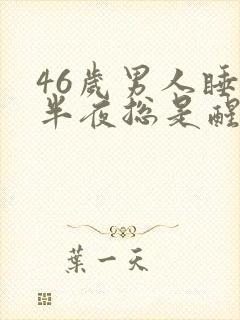 46岁男人睡
半夜总是醒
葉一天